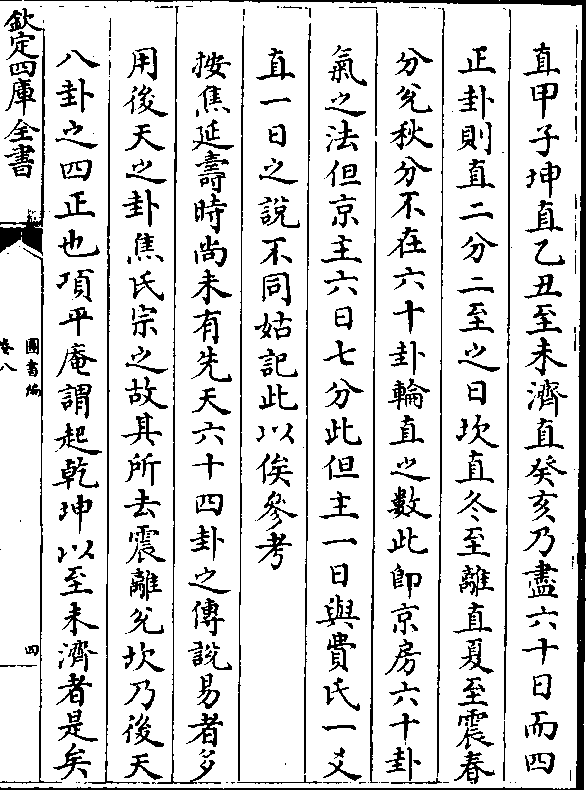 直甲子坤直乙丑至未濟直癸亥乃盡六十日而四
正卦則直二分二至之日坎直冬至離直夏至震春
分兊秋分不在六十卦輪直之數此即京房六十卦
氣之法但京主六日七分此但主一日與費氏一爻
直一日之說不同姑記此以俟參考
按焦延壽時尚未有先天六十四卦之傳說易者多
用後天之卦焦氏宗之故其所去震離兊坎乃後天
八卦之四正也項平庵謂起乾坤以至未濟者是矣
欽定四庫全書
圖書編
卷八
四